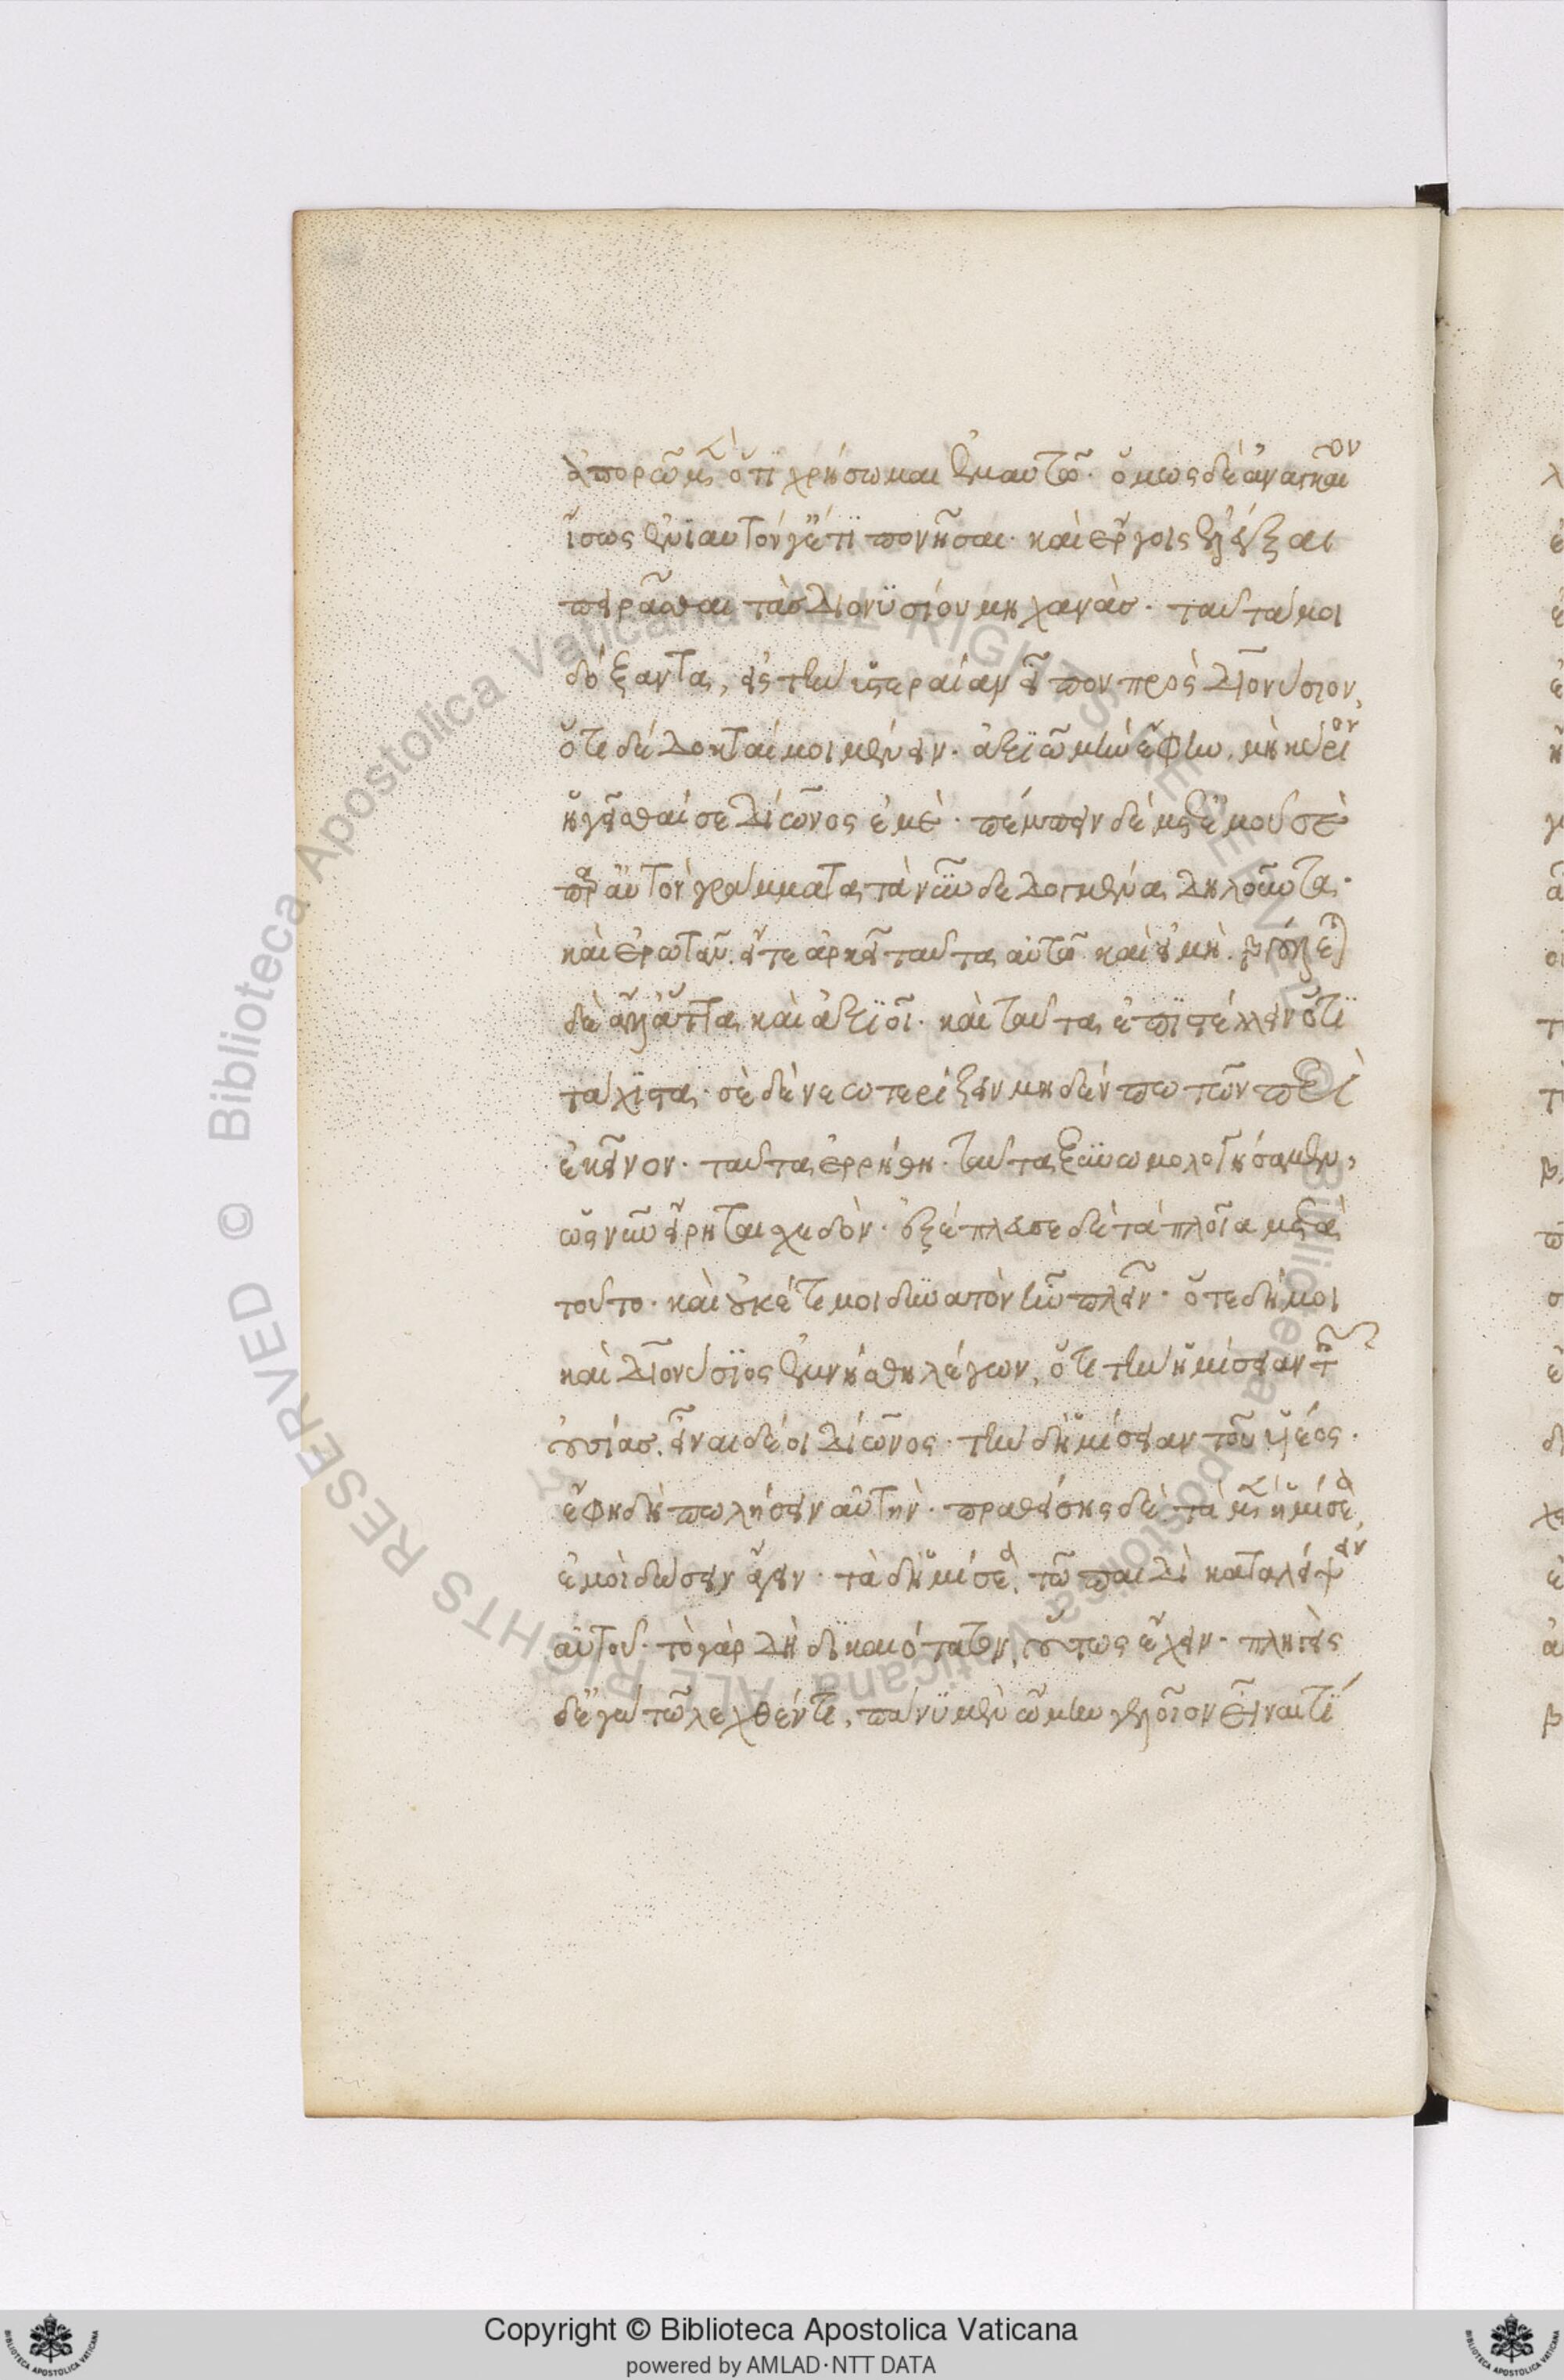 ἀπορῶ μὲν ὅτι χρήσωμαι ἐμαυτῷ. ὅμως δὲ ἀναγκαῖον
ἴσως ἐνιαυτόν γε ἔτι πονῆσαι. καὶ ἔργοις ἐλέγξαι
πειρᾶσθαι τὰς Διονυσίου μηχανάς. ταῦτά μοι
δόξαντα, εἰς τὴν ὑστεραίαν εἶπον πρὸς Διονύσιον,
ὅτι δέδοκταί μοι μένειν. ἀξιῶ μὴν ἔφην, μὴ κύριον
ἡγεῖσθαί σε Δίωνος ἐμέ. πέμπειν δὲ μετ' ἐμοῦ σὲ
παρ' αὐτὸν γράμματα τὰ νῦν δεδογμένα δηλοῦντα.
καὶ ἐρωτᾶν. εἴτε ἀρκεῖ ταῦτα αὐτῷ. καὶ εἰ μὴ. βούλεται
δὲ ἄλλ' ἄττα καὶ ἀξιοῖ. καὶ ταῦτα ἐπιστέλλειν ὅτι
τάχιστα. σὲ δὲ νεωτερίζειν μηδέν πω τῶν περὶ
ἐκεῖνον. ταῦτα ἐρρήθη. ταῦτα ξυνωμολογήσαμεν,
ὡς νῦν εἴρηται σχεδόν. ἐξέπλευσε δὲ τὰ πλοῖα μετὰ
τοῦτο. καὶ οὐκέτι μοι δυνατὸν ἦν πλεῖν. ὅτε δή μοι
καὶ Διονύσιος ἐμνήσθη λέγων, ὅτι τὴν ἡμίσειαν τῆς
οὐσίας. εἶναι δέοι Δίωνος. τὴν δ' ἡμίσειαν τοῦ υἱέος.
ἔφη δὴ πωλήσειν αὐτήν. πραθείσης δὲ. τὰ μὲν ἡμίσεα,
ἐμοὶ δώσειν ἄγειν. τὰ δ' ἡμίσεα, τῷ παιδὶ καταλείψειν
αὐτοῦ. τὸ γὰρ δὴ δικαιότατον, οὕτως ἔχειν. πληγεὶς
δ' ἐγὼ τῷ λεχθέντι, πάνυ μὲν ᾤμην γελοῖον εἶναι τί